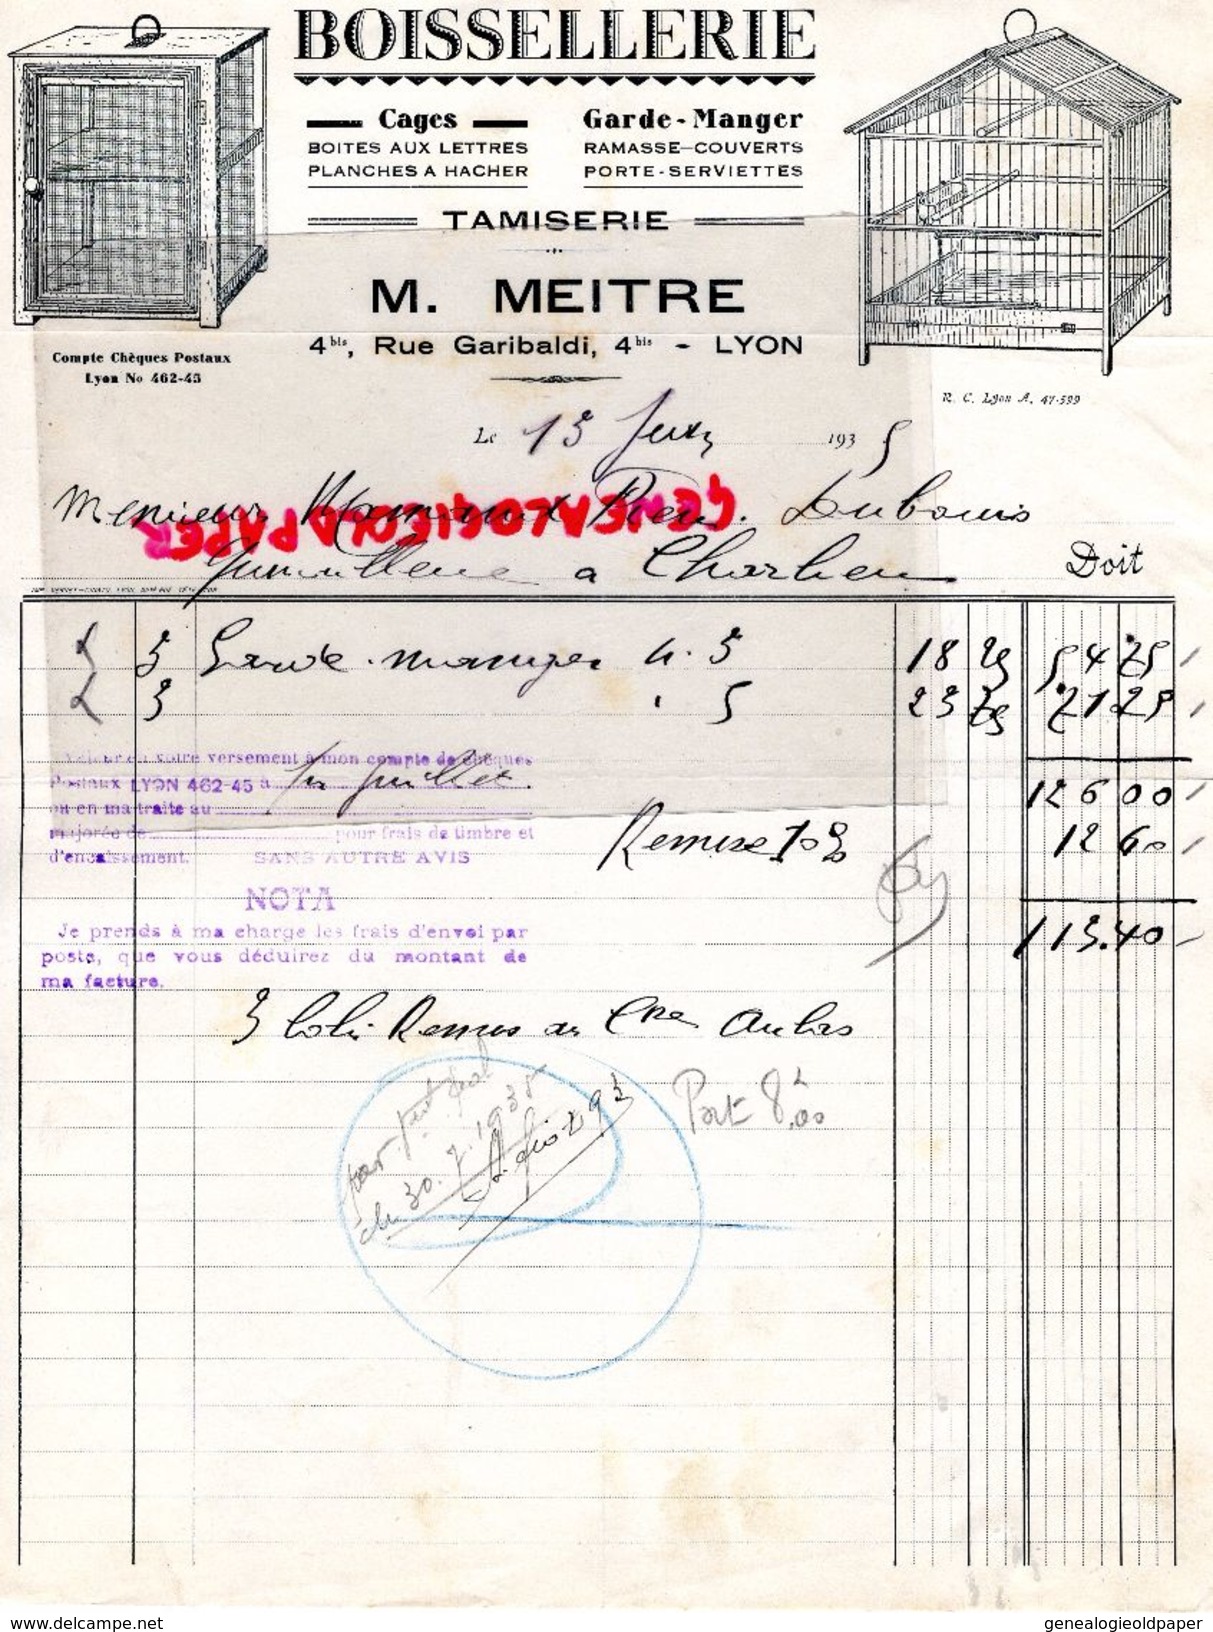 BOISSELLERIE
Cages
BOITES AUX LETTRES
PLANCHES A HACHER
Garde-Manger
RAMASSE-COUVERTS
PORTE-SERVIETTES
TAMISERIE
M. MEITRE
4bis, Rue Garibaldi, 4bis - LYON
Compte Chèques Postaux
Lyon No 462-45
R. C. Lyon A. 47-599
Le 13 Juin 1935
GENEALOGIEOLDPAPER
à Charlieu
Doit
3 Garde-manger n. 3 18 25 54 75
3 5 23 75 71 25
Valeur en votre versement à mon compte de chèques
Postaux LYON 462-45 à fin Juillet.
ou en ma traite au
majorée de pour frais de timbre et
d'encaissement. SANS AUTRE AVIS
126 00
Remise 10% 12 60
113.40
NOTA
Je prends à ma charge les frais d'envoi par
poste, que vous déduirez du montant de
ma facture.
3 Colis Remis au
Port 8,00
du 30.7.1935
delcampe.net
genealogieoldpaper